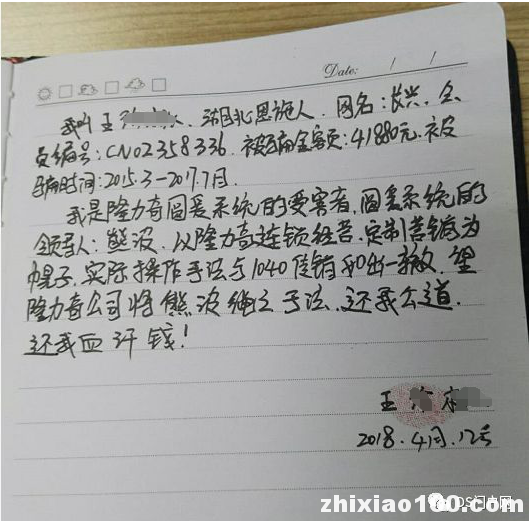 Date: / /
我叫王 湖北恩施人、网名:长兴、会
员编号:CN02358336、被骗金额:41880元、被
骗时间:2015.3-2017.7月.
我是隆力奇圆爱系统的受害者,圆爱系统的
领导人:熊波、以隆力奇连锁经营、定制营销为
帽子,实际操作手法与1040传销如出一辙、望
隆力奇公司将熊波绳之于法、还我公道、
还我血汗钱!
王
2018.4月.12号
DS
zhixiao100.com